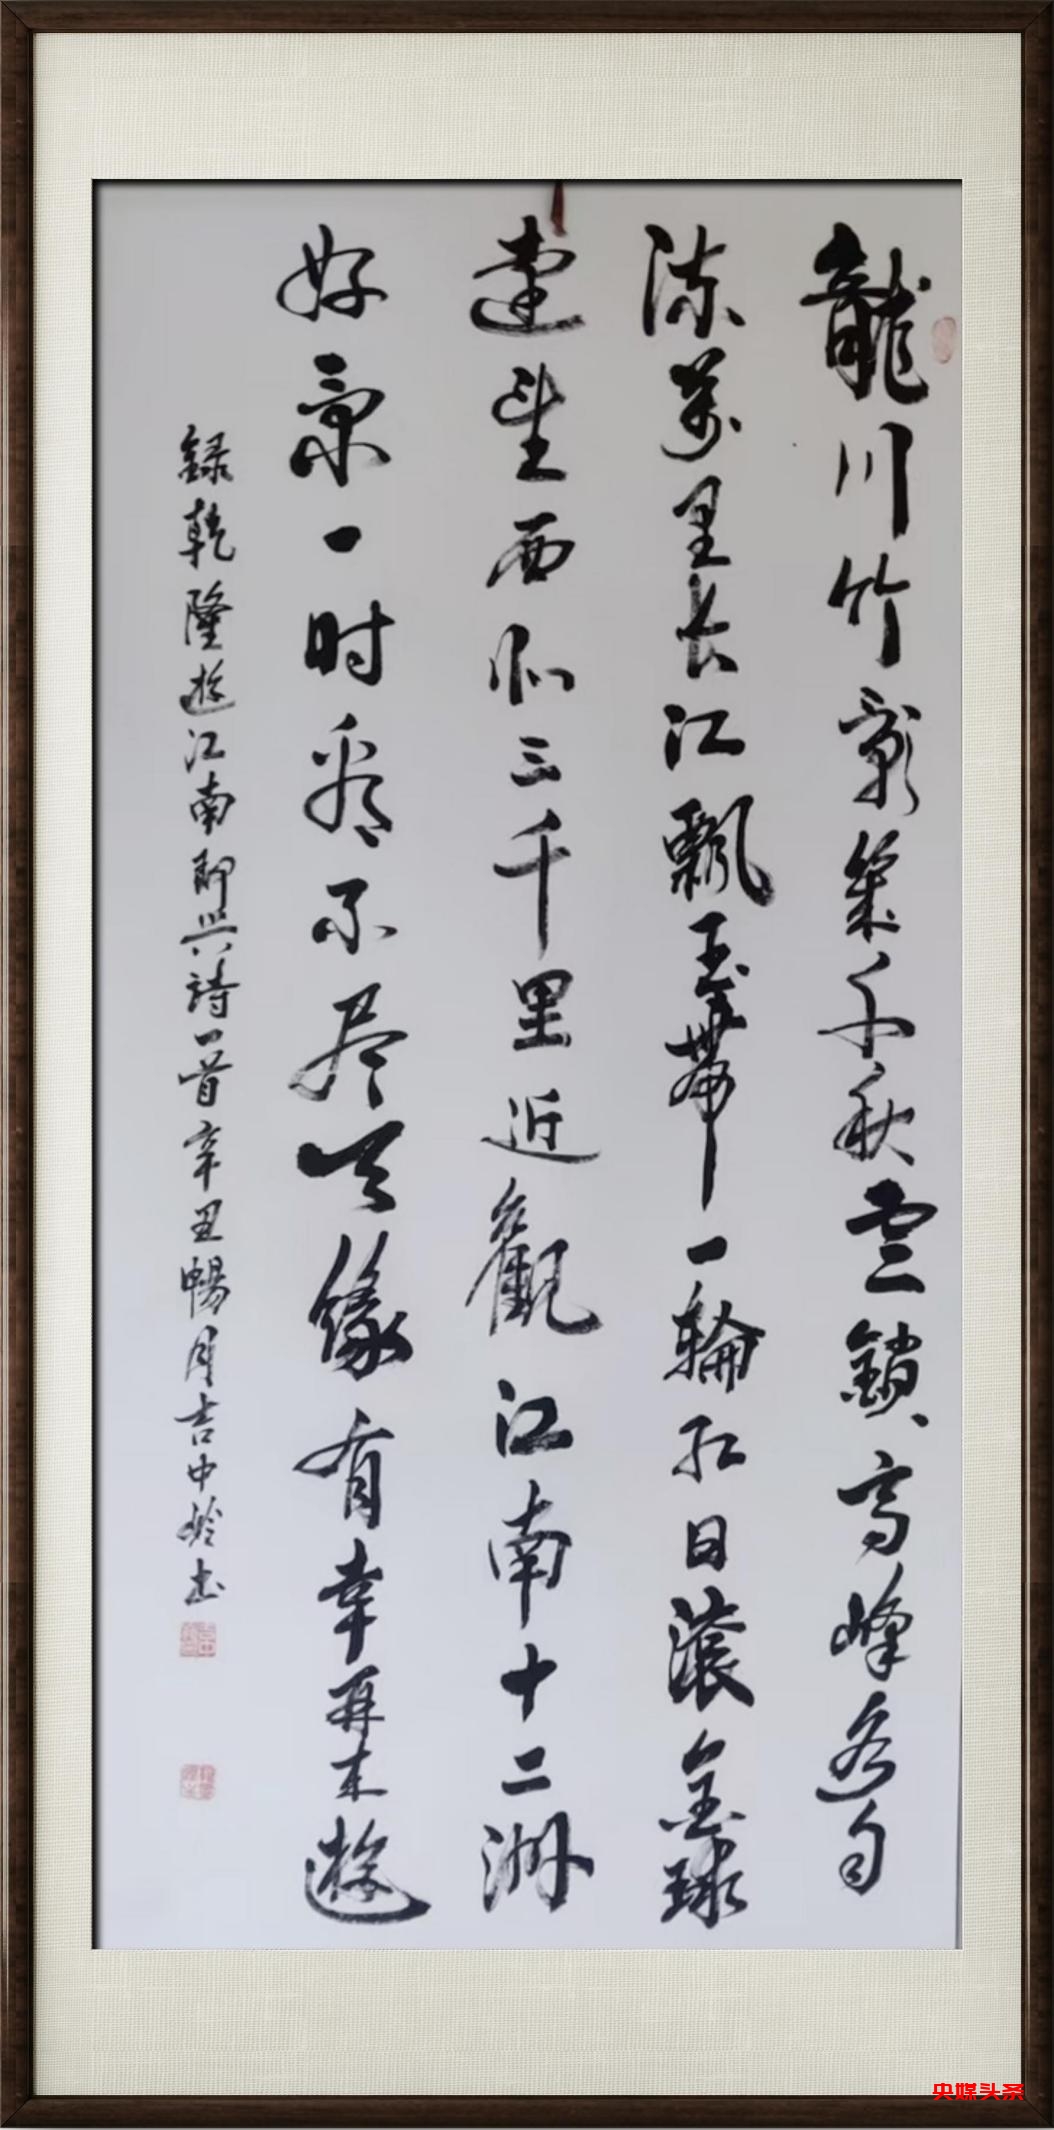 龍川竹影幾千秋雲鎖高峰自
流萬里长江飄玉帶一輪红日滾金球
遠望西北三千里近觀江南十二洲
好景一时看不尽天缘有幸再来遊
録乾隆遊江南即興詩一首辛丑暢月吉中岭书
央媒头条